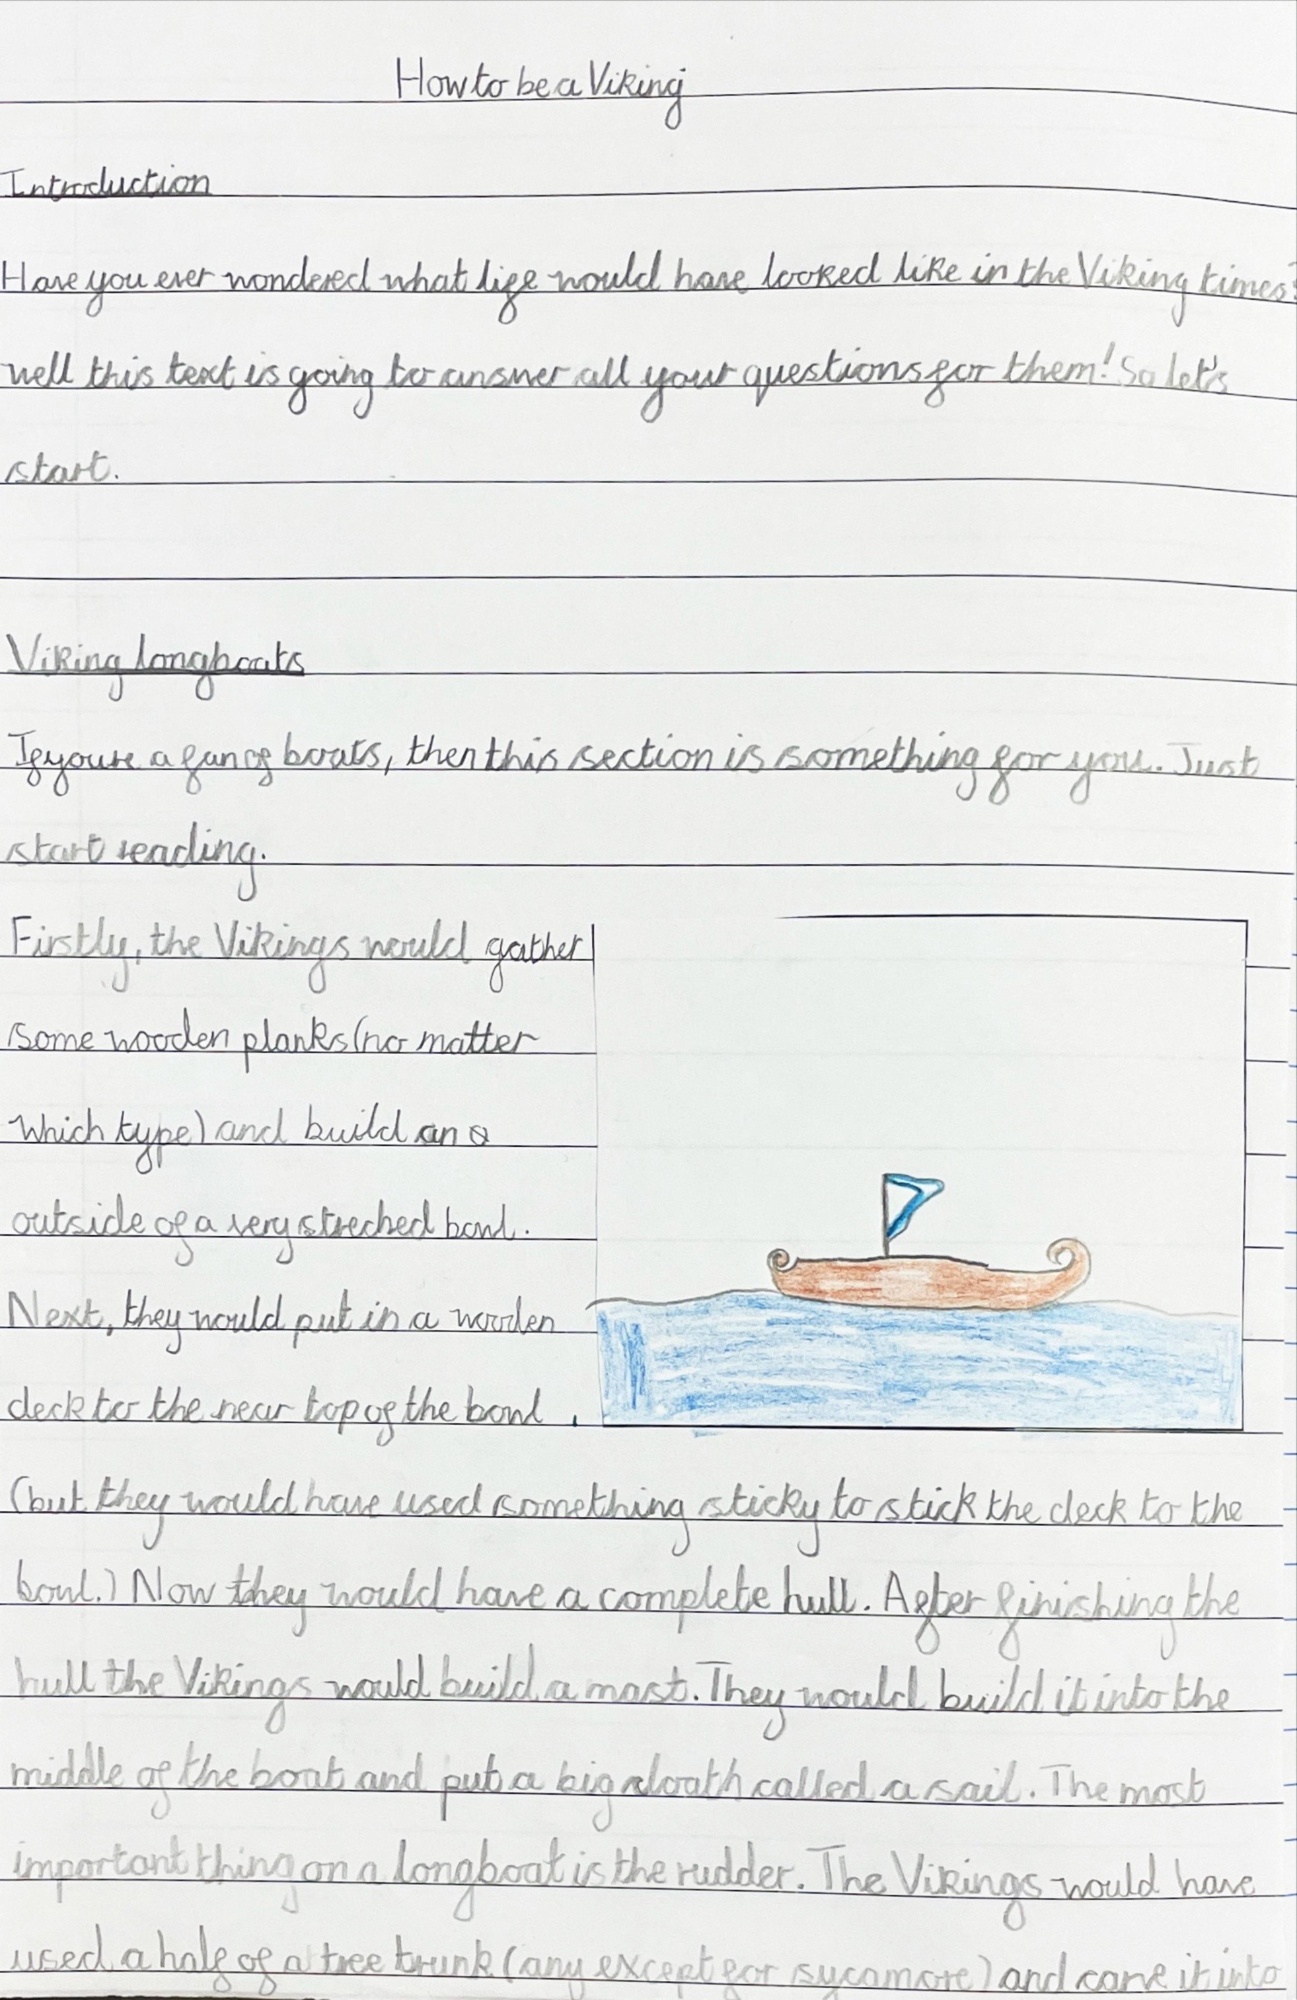 How to be a Viking
Introduction
Have you ever wondered what life would have looked like in the Viking times?
well this text is going to answer all your questions for them! So let's
start.
Viking longboats
If youre a fan of boats, then this section is something for you. Just
start reading.
Firstly, the Vikings would gather
some wooden planks (no matter
which type) and build an
outside of a very streched bowl.
Next, they would put in a wooden
deck to the near top of the bowl .
(but they would have used something sticky to stick the deck to the
bowl.) Now they would have a complete hull. After finishing the
hull the Vikings would build a mast. They would build it into the
middle of the boat and put a big cloath called a sail. The most
important thing on a longboat is the rudder. The Vikings would have
used a half of a tree trunk (any except for sycamore) and carve it into